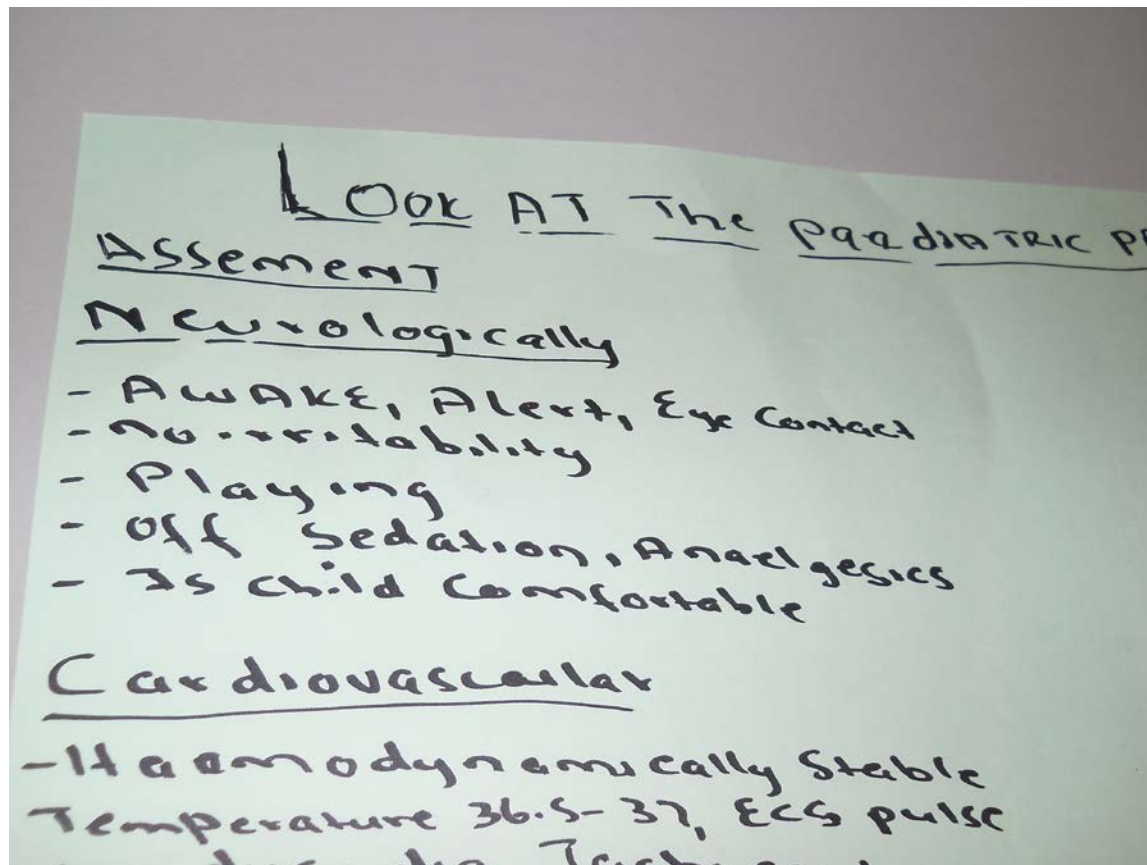 LOOK AT The PaediATRIC
ASSemenT
Neurologically
- AWAKE, Alert, Eye Contact
- no irritability
- Playing
- Off Sedation, Anaelgesics
- Is child Comfortable
Cardiovascular
- Haemodynamically Stable
Temperature 36.5-37, ECG pulse